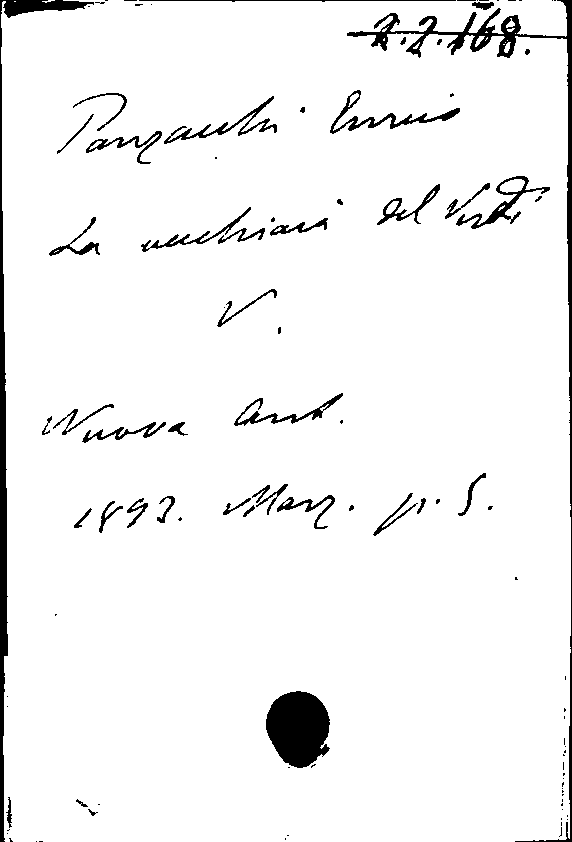 2.2.168.
Panzacchi Enrico
La vecchiaia del Verdi
V.
Nuova Ant.
1893. Marz. p. 5.